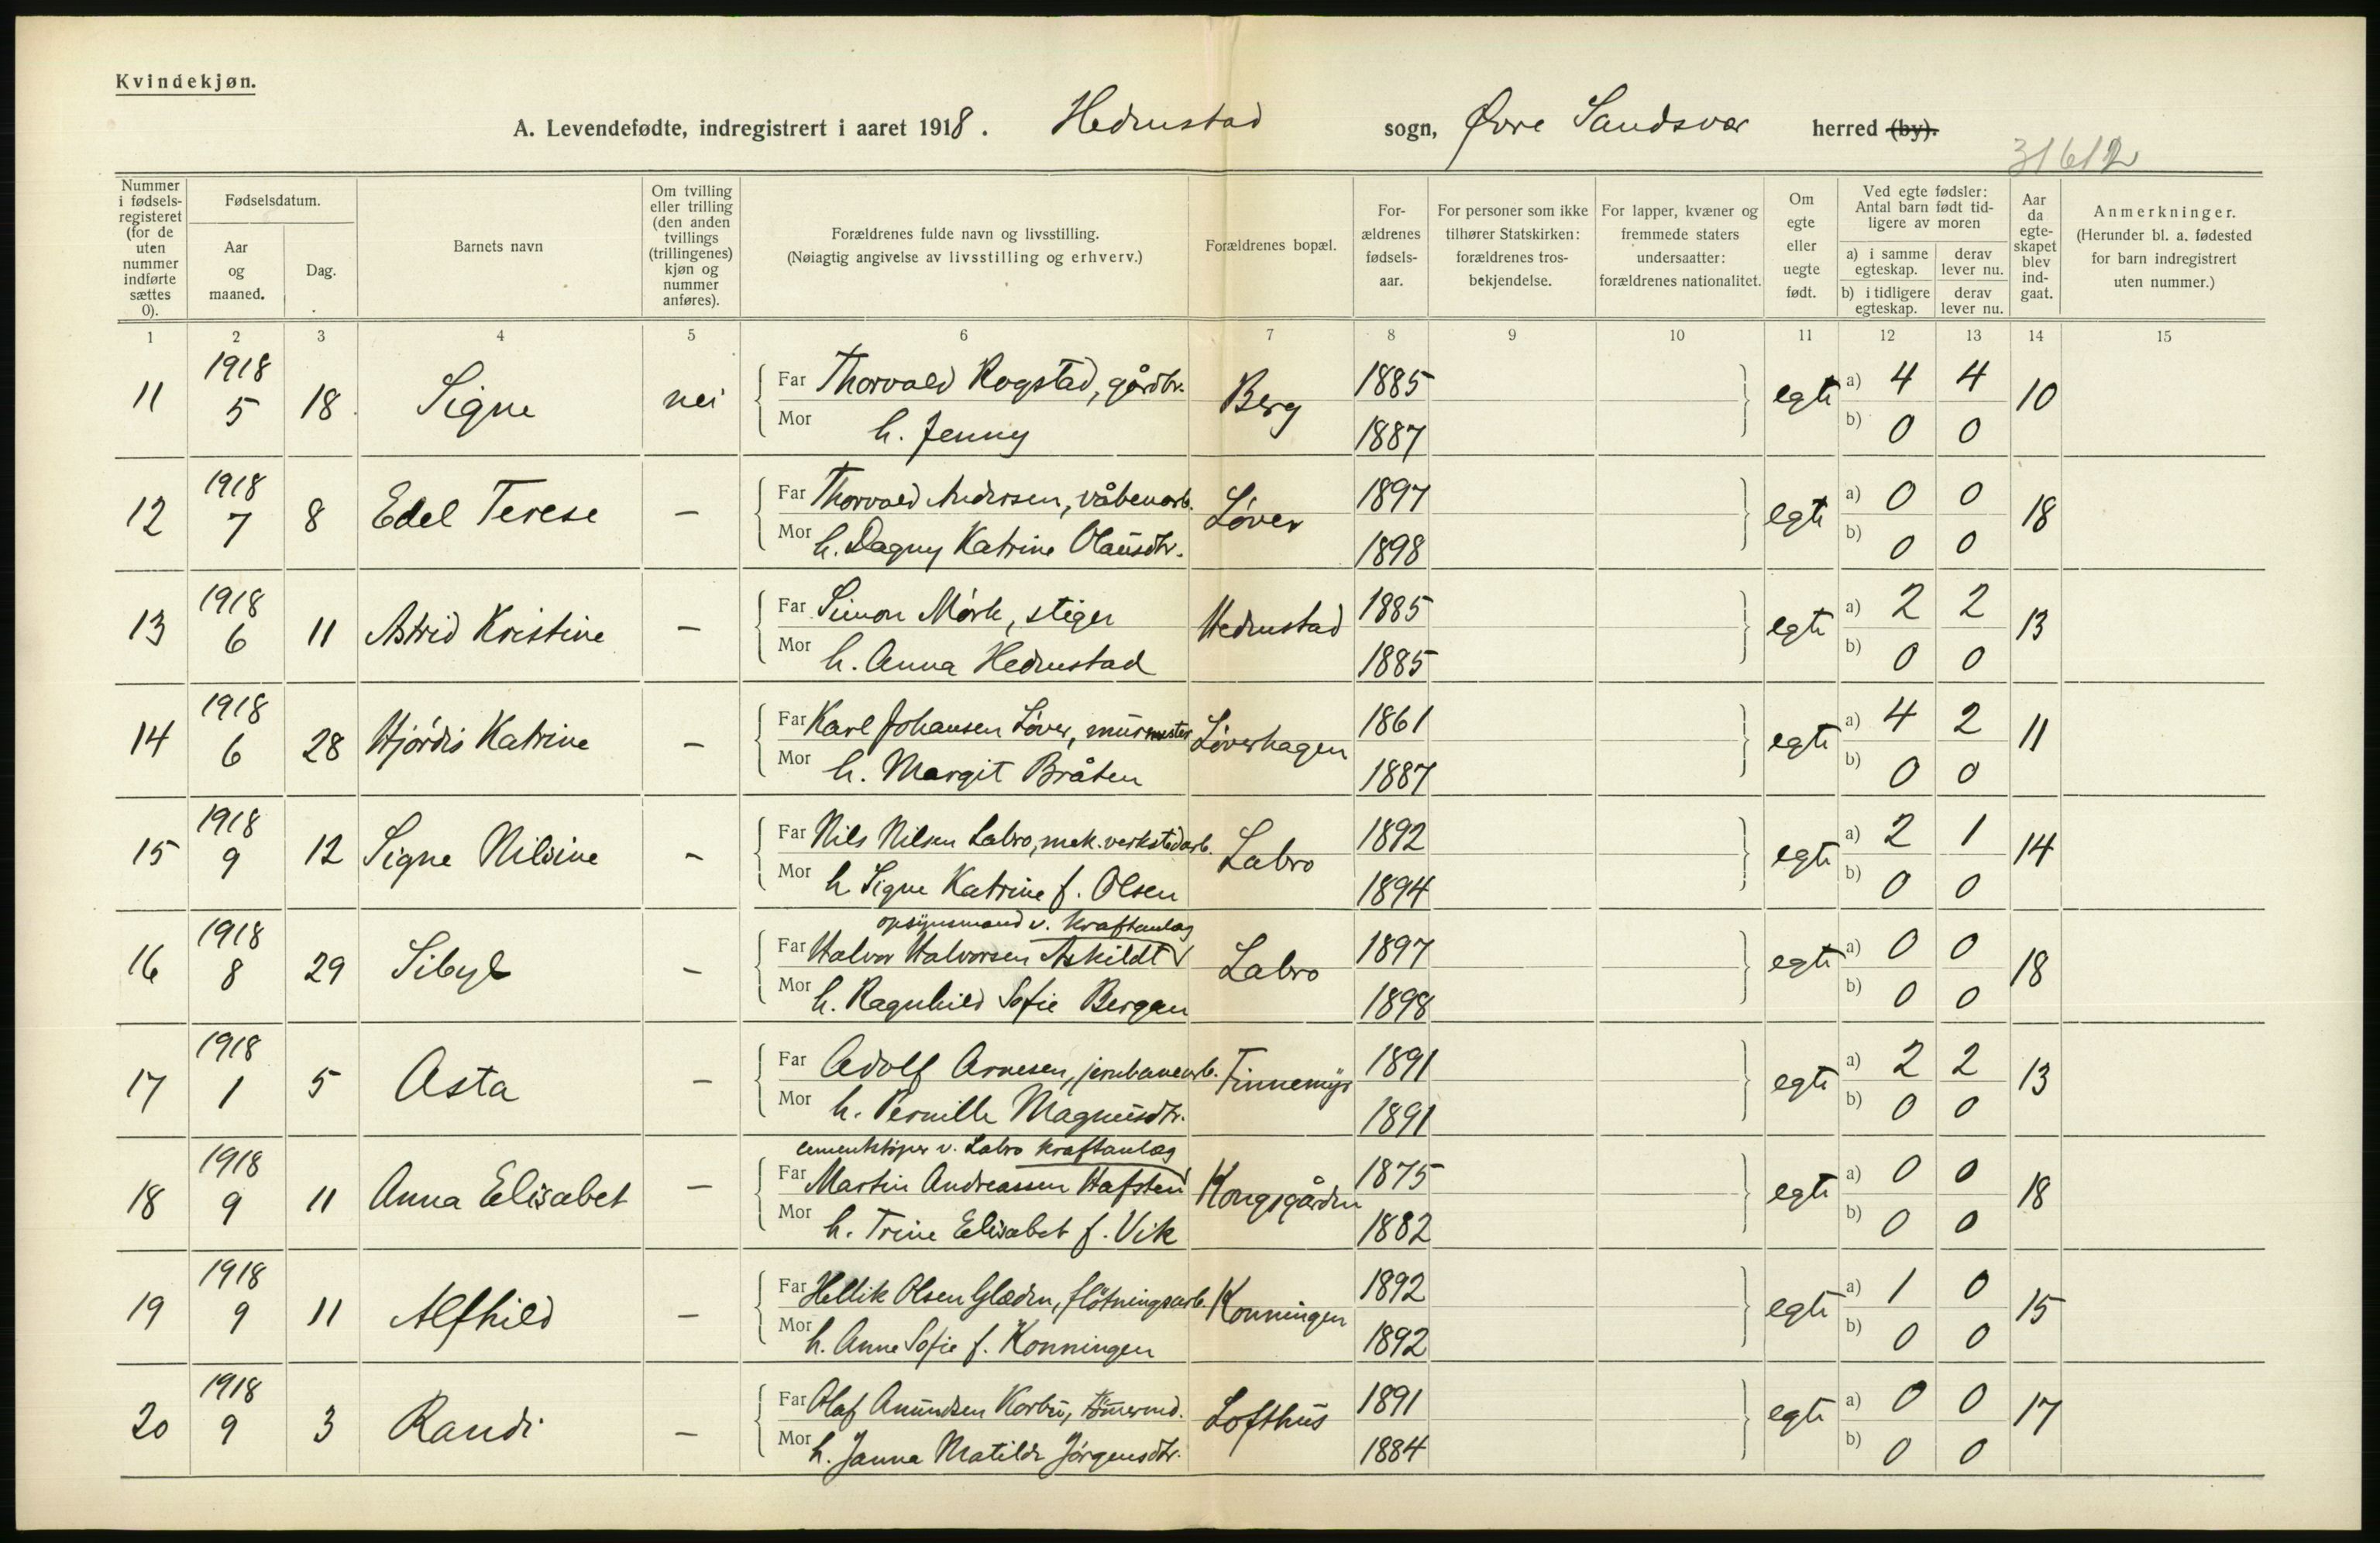 Kvindekjøn.
A. Levendefødte, indregistrert i aaret 1918. Hedenstad sogn, Øvre Sandsvær herred (by).
31612
Nummer i fødsels-registeret (for de uten nummer indførte sættes 0).
Fødselsdatum.
Aar og maaned.
Dag.
Barnets navn
Om tvilling eller trilling (den anden tvillings (trillingenes) kjøn og nummer anføres).
Forældrenes fulde navn og livsstilling.
(Nøiagtig angivelse av livsstilling og erhverv.)
Forældrenes bopæl.
For-ældrenes fødsels-aar.
For personer som ikke tilhører Statskirken: forældrenes tros-bekjendelse.
For lapper, kvæner og fremmede staters undersaatter: forældrenes nationalitet.
Om egte eller uegte født.
Ved egte fødsler: Antal barn født tid-ligere av moren
a) i samme egteskap. derav lever nu.
b) i tidligere egteskap. derav lever nu.
Aar da egte-skapet blev ind-gaat.
Anmerkninger.
(Herunder bl. a. fødested for barn indregistrert uten nummer.)
1 2 3 4 5 6 7 8 9 10 11 12 13 14 15
11 1918 5 18 Signe nei Far Thorvald Rogstad, gårdbr. Berg 1885 egte a) 4 4 10
Mor h. Jenny 1887 b) 0 0
12 1918 7 8 Edel Terese – Far Thorvald Andersen, våbenarb. Løver 1897 egte a) 0 0 18
Mor h. Dagny Katrine Olausdtr. 1898 b) 0 0
13 1918 6 11 Astrid Kristine – Far Simon Mørk, stiger Hedenstad 1885 egte a) 2 2 13
Mor h. Anna Hedenstad 1885 b) 0 0
14 1918 6 28 Hjørdis Katrine – Far Karl Johansen Løver, murmester Løverhagen 1861 egte a) 4 2 11
Mor h. Margit Bråten 1887 b) 0 0
15 1918 9 12 Signe Nilsine – Far Nils Nilsen Labro, mek. verkstedarb. Labro 1892 egte a) 2 1 14
Mor h. Signe Katrine f. Olsen 1894 b) 0 0
opsynsmand v. kraftanlæg
16 1918 8 29 Sibyl – Far Halvor Halvorsen Askildt Labro 1897 egte a) 0 0 18
Mor h. Ragnhild Sofie Bergan 1898 b) 0 0
17 1918 1 5 Asta – Far Adolf Arnesen, jernbanearb. Tinnemyr 1891 egte a) 2 2 13
Mor h. Pernille Magnusdtr. 1891 b) 0 0
cementstøper v. Labro kraftanlæg
18 1918 9 11 Anna Elisabet – Far Martin Andreassen Hafsten Kongsgården 1875 egte a) 0 0 18
Mor h. Trine Elisabet f. Vik 1882 b) 0 0
19 1918 9 11 Alfhild – Far Hellik Olsen Glæden, fløtningsarb. Konningen 1892 egte a) 1 0 15
Mor h. Anne Sofie f. Konningen 1892 b) 0 0
20 1918 9 3 Randi – Far Olaf Amundsen Korbu, tømermd. Lofthus 1891 egte a) 0 0 17
Mor h. Janna Matilde Jørgensdtr. 1884 b) 0 0